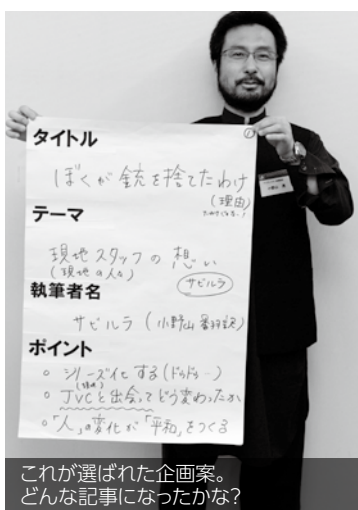 タイトル
ぼくが銃を捨てたわけ
(理由)
テーマ
現地スタッフの想い
(現地の人々)
サビルラ
執筆者名
サビルラ(小野山
ポイント
○ シリーズ化する(ドゥドゥ―)
○ JVCと出会ってどう変わったか
○「人」の変化が「平和」をつくる
これが選ばれた企画案。
どんな記事になったかな?